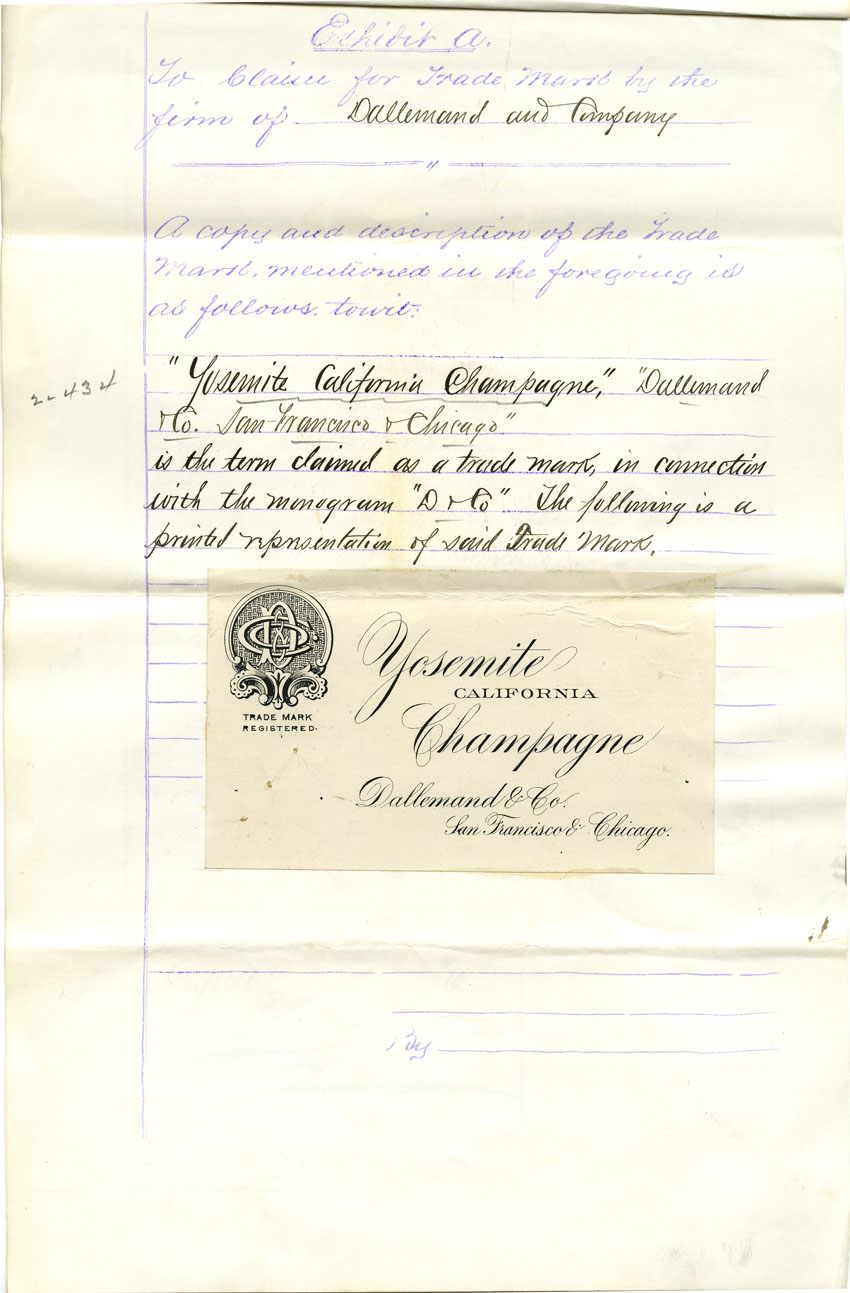 Exhibit A.
To Claim for Trade Mark by the
firm of Dallemand and Company
"
A copy and description of the Trade
Mark, mentioned in the foregoing is
as follows. towit:
2-434
"Yosemite California Champagne," "Dallemand
& Co. San Francisco & Chicago"
is the term claimed as a trade mark, in connection
with the monogram "D & Co". The following is a
printed representation of said Trade Mark.
TRADE MARK
REGISTERED.
Yosemite
CALIFORNIA
Champagne
Dallemand & Co.
San Francisco & Chicago.
By